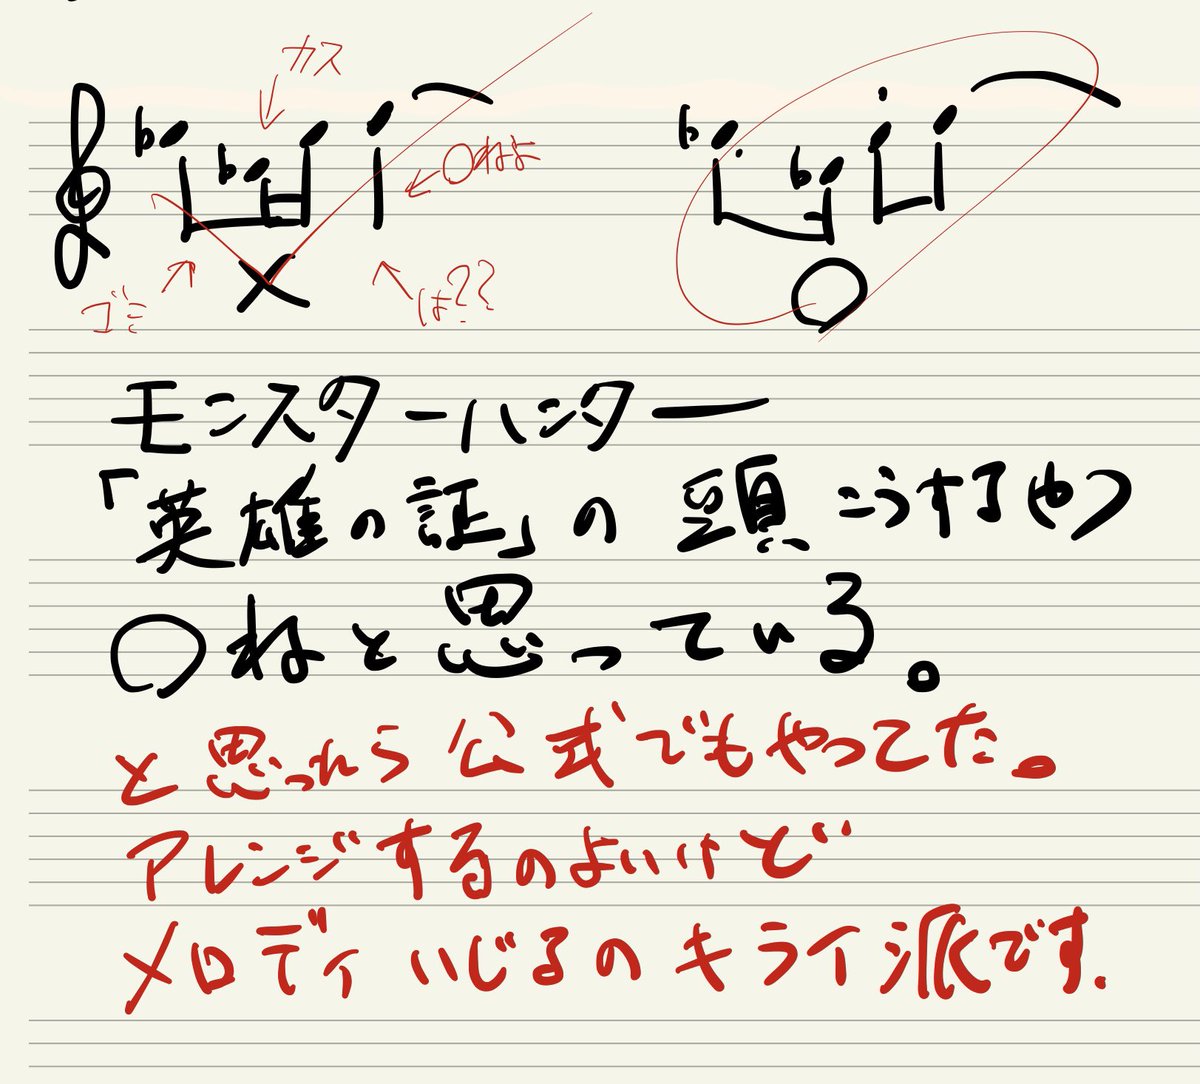 カス
〇ねよ
ゴミ
は??
モンスターハンター
「英雄の証」の 頭 こうするやつ
〇ねと思っている。
と思ったら公式でもやってた。
アレンジするのよいけど
メロディいじるのキライ派です.